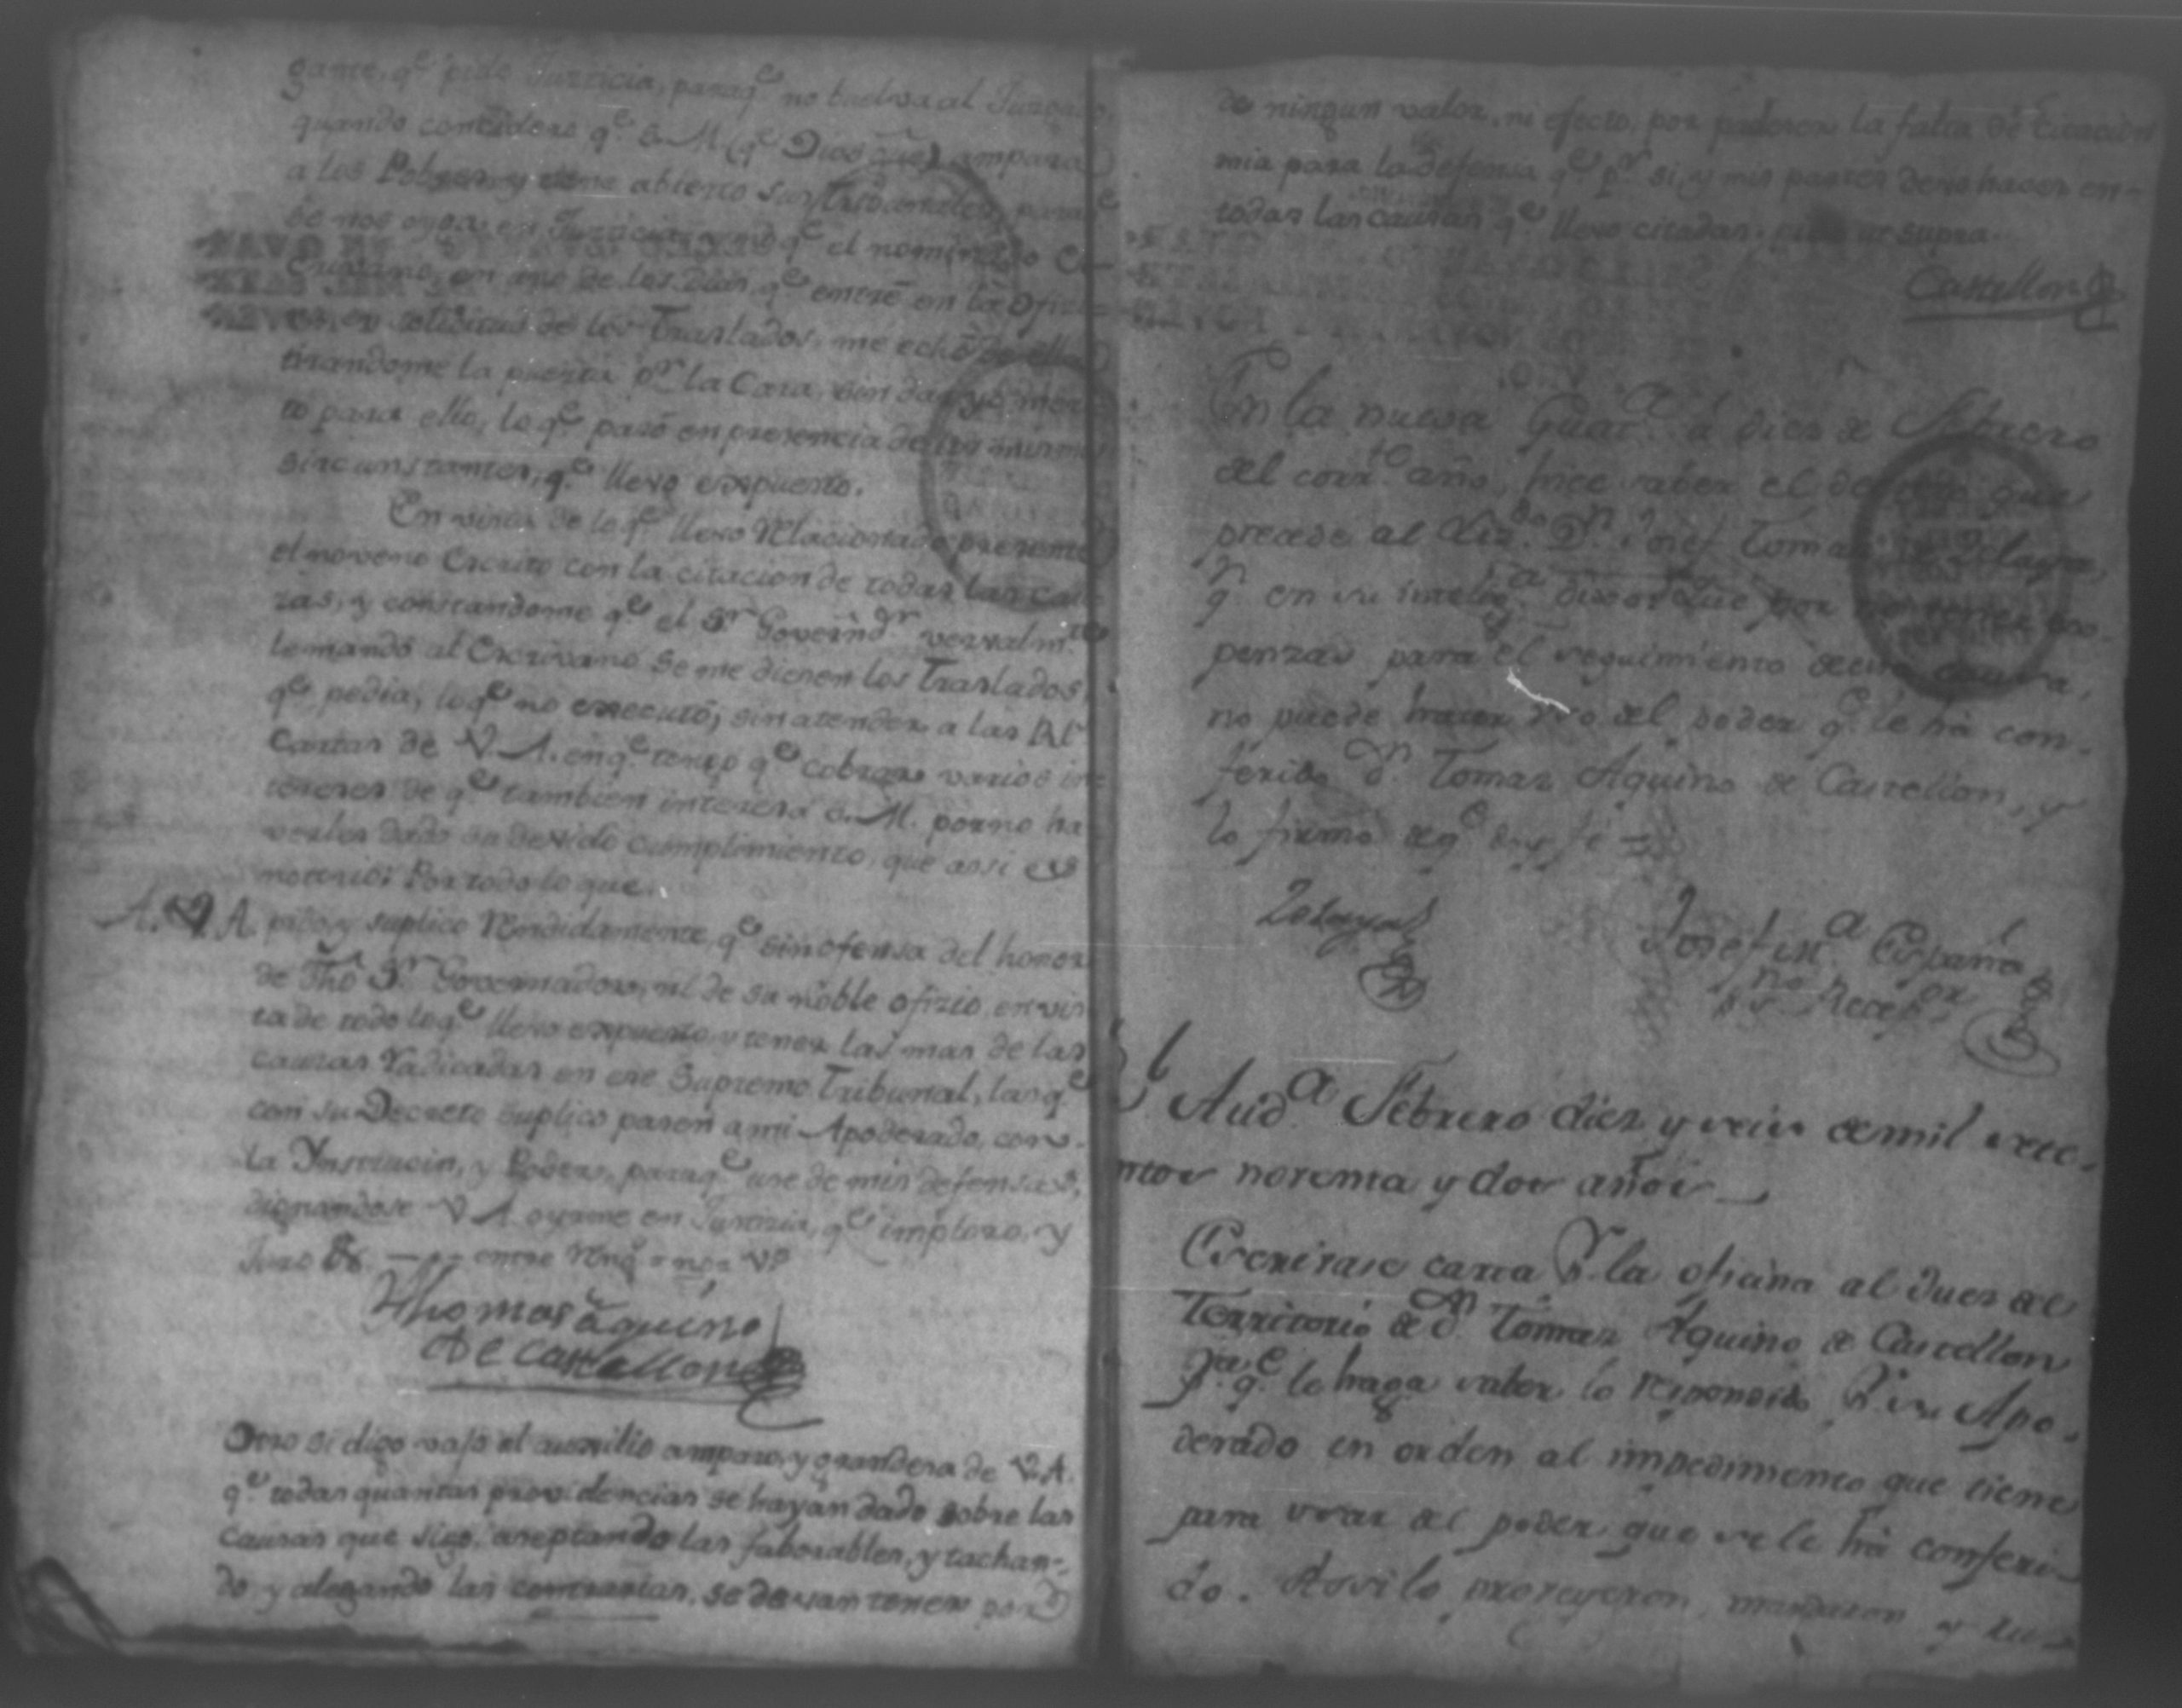 gante, q.e pide Justicia, paraq.e no buelva al Juzgado,
quando considero q.e S. M. (q.e Dios gũe) ampara
a los Pobres, y tiene abierto sus tribunales, para q.e
se nos oyga en Justicia, y no q.e el nominado Es-
crivano, en uno de los dias, q.e entré en la ofici-
na, en solicitud de los Traslados, me echó de ella
tirandome la puerta p.r la Cara, sin dar yo moti
to para ello, lo q.e pasó en presencia de los mismos
sircunstantes, q.e llevo expuesto.
En virtud de lo q.e llevo Relacionado presenté
el noveno Escrito con la citacion de todas las cau
zas, y constandome q.e el S.r Governd.r vervalm.te
le mandó al Escrivano se me diesen los Traslados,
q.e pedia, lo q.e no executó, sin atender a las Rl.s
Cartas de V. A. en q.e tengo q.e cobrar varios in-
tereses de q.e tambien interesa S. M. por no ha
verles dado su devido cumplimiento, que assi es
notorio: Por todo lo que.
A. V. A. pido y suplico Rendidamente, q.e sin ofensa del honor
de dho S.r Governador, ni de su noble ofizio, en vis
ta de todo lo q.e llevo expuesto, y tener las mas de las
causas Radicadas en ese Supremo Tribunal, las q.e
con su Decreto suplico pasen a mi Apoderado, con
la Ynstrucin, y Poder, paraq.e use de mis defensas,
dignandose V. A. oyrme en Justizia, q.e imploro, y
Juro &.
Thomas Aquino
de Castellon
Otro si digo vajo el auxilio amparo, y grandesa de V. A.
q.e todas quantas providencias se hayan dado sobre las
causas que sigo, aseptando las faborables, y tachan-
do, y alegando las contrarias, se devan tener por
de ningun valor, ni efecto, por padecer la falta de citacion
mia para la defensa q.e p.r si, y mis partes devo hacer en-
todas las causas q.e llevo citadas, pido ut supra.
Castellon
En la nueva Guat.a á diez de Febrero
del corr.te año, hice saber el decreto que
precede al Liz.do D.n Josef Tomas de Zelaya,
q.n en su intelig.a dixo: Que por no tener ex-
penzas para el seguimiento de esta causa,
no puede hacer uso del poder q.e le há con-
ferido d.n Tomas Aquino de Castellon, y
lo firmó de q.e doy fé =
Zelaya
Josef M.a España
Ss.no Recep.or
Rl Aud.a Febrero diez y seis de mil setec.
ntos noventa y dos años
Escrivase carta p.r la oficina al Juez del
Territorio de d.n Tomas Aquino de Castellon
p.a q.e le haga saber lo respondido p.r su Apo-
derado en orden al impedimento que tiene
para usar del poder que se le há conferi-
do. Asi lo proveyeron, mandaron y